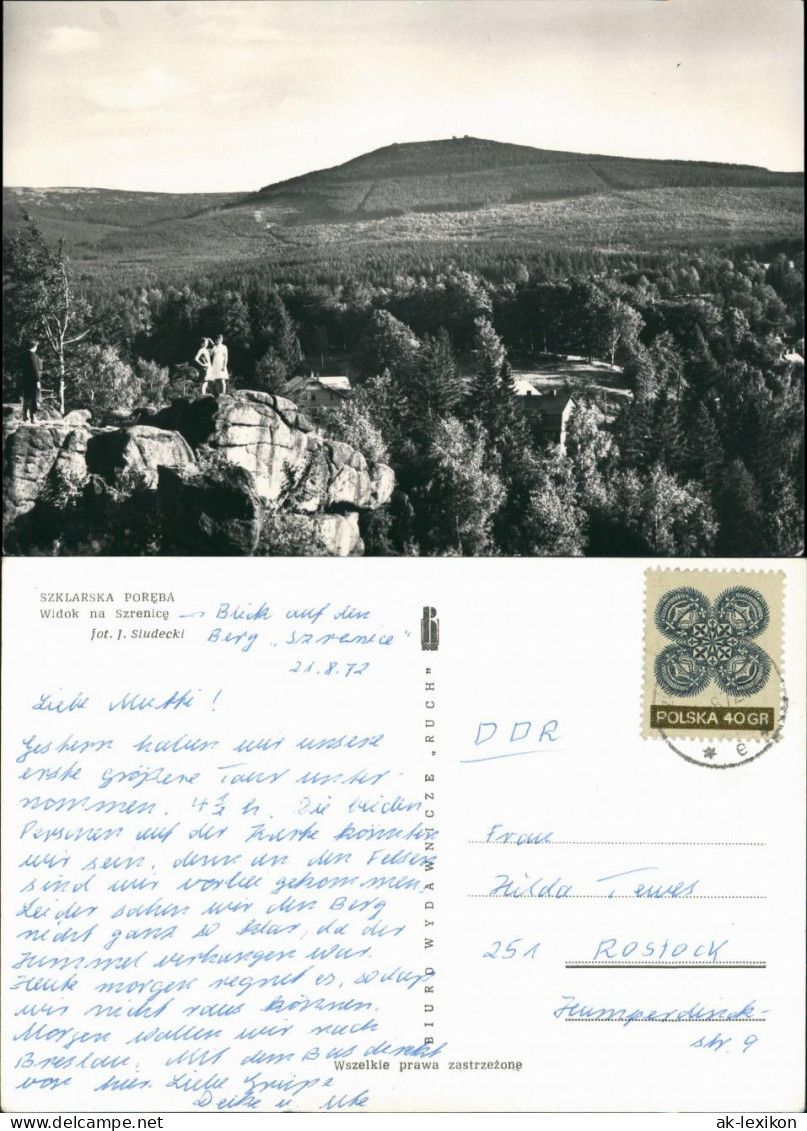 SZKLARSKA PORĘBA
Widok na Szrenicę
fot. J. Siudecki
Blick auf den
Berg „Szrenice"
21.8.72
Liebe Mutti!
Gestern haben wir unsere
erste größere Tour unter-
nommen. 4½ h. Die beiden
Personen auf der Karte könnten
wir sein, denn an den Felsen
sind wir vorbei gekommen.
Leider sahen wir den Berg
nicht ganz so klar, da der
Himmel verhangen war.
Heute morgen regnet es, sodaß
wir nicht raus können.
Morgen wollen wir nach
Breslau. Mit dem Bus direkt
vor hier. Liebe Grüße
u. Ute
BIURO WYDAWNICZE „RUCH"
Wszelkie prawa zastrzeżone
POLSKA 40 GR
DDR
Frau
Hilda Tewes
251 Rostock
Humperdinck-
str. 9
ak-lexikon ak-lexikon
www.delcampe.net